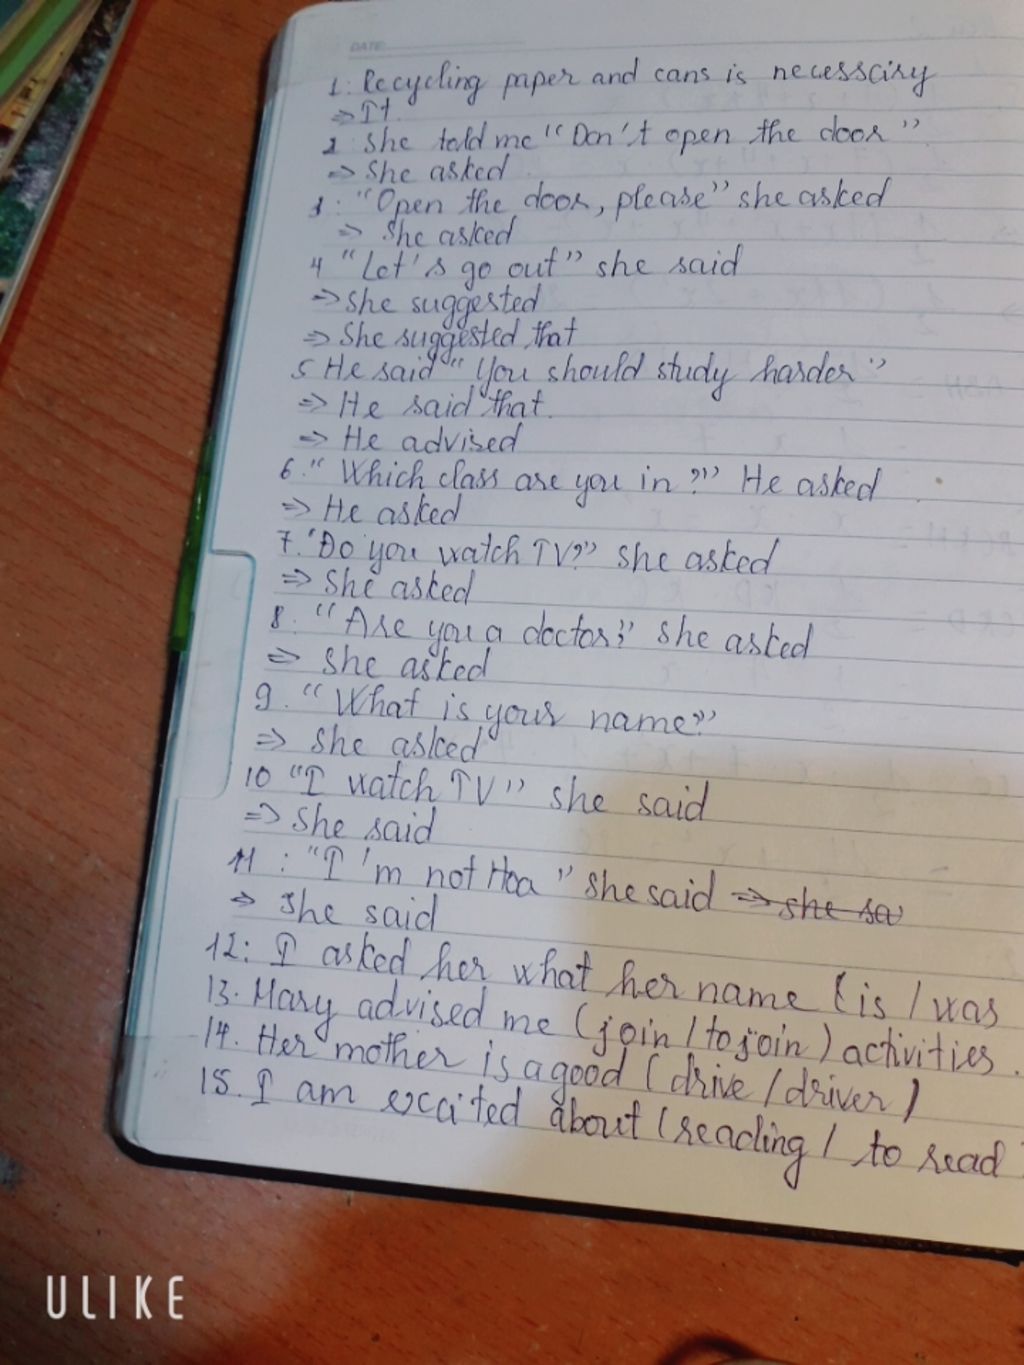 DATE:
1: Recycling paper and cans is necessciry
=> It
2 She told me "Don't open the door"
=> She asked
3: "Open the door, please" she asked
=> She asked
4 "Let's go out" she said
=> She suggested
=> She suggested that
5 He said "You should study harder"
=> He said that.
=> He advised
6. "Which class are you in?" He asked
=> He asked
7. "Do you watch TV?" she asked
=> She asked
8. "Are you a doctor?" she asked
=> She asked
9. "What is your name?"
=> She asked
10 "I watch TV" she said
=> She said
11: "I'm not Hoa" she said => she sa
=> She said
12: I asked her what her name (is / was
13. Mary advised me (join / to join) activities.
14. Her mother is a good (drive / driver)
15. I am excited about (reading / to read)
ULIKE